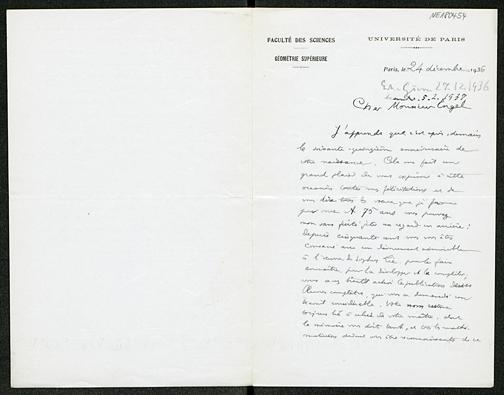 NE180454
FACULTÉ DES SCIENCES
UNIVERSITÉ DE PARIS
GÉOMÉTRIE SUPÉRIEURE
Paris, le 24 décembre 1936
27.12.1936
5.2.1937
Cher Monsieur Engel
J'apprends que c'est après-demain
le soixante-quinzième anniversaire de
votre naissance. Cela me fait un
grand plaisir de vous exprimer à cette
occasion toutes mes félicitations et de
vous dire tous les vœux que je forme
pour vous. A 75 ans vous pouvez
non sans fierté jeter un regard en arrière :
Depuis cinquante ans vous vous êtes
consacré avec un dévouement admirable
à l'œuvre de Sophus Lie pour la faire
connaître, pour la développer et la compléter,
vous avez bientôt achevé la publication de ses
Œuvres complètes, qui vous a demandé un
travail considérable. Votre nom restera
toujours lié à celui de votre maître, dont
la mémoire vous doit tant, et tous les mathé-
maticiens doivent vous être reconnaissants de ce